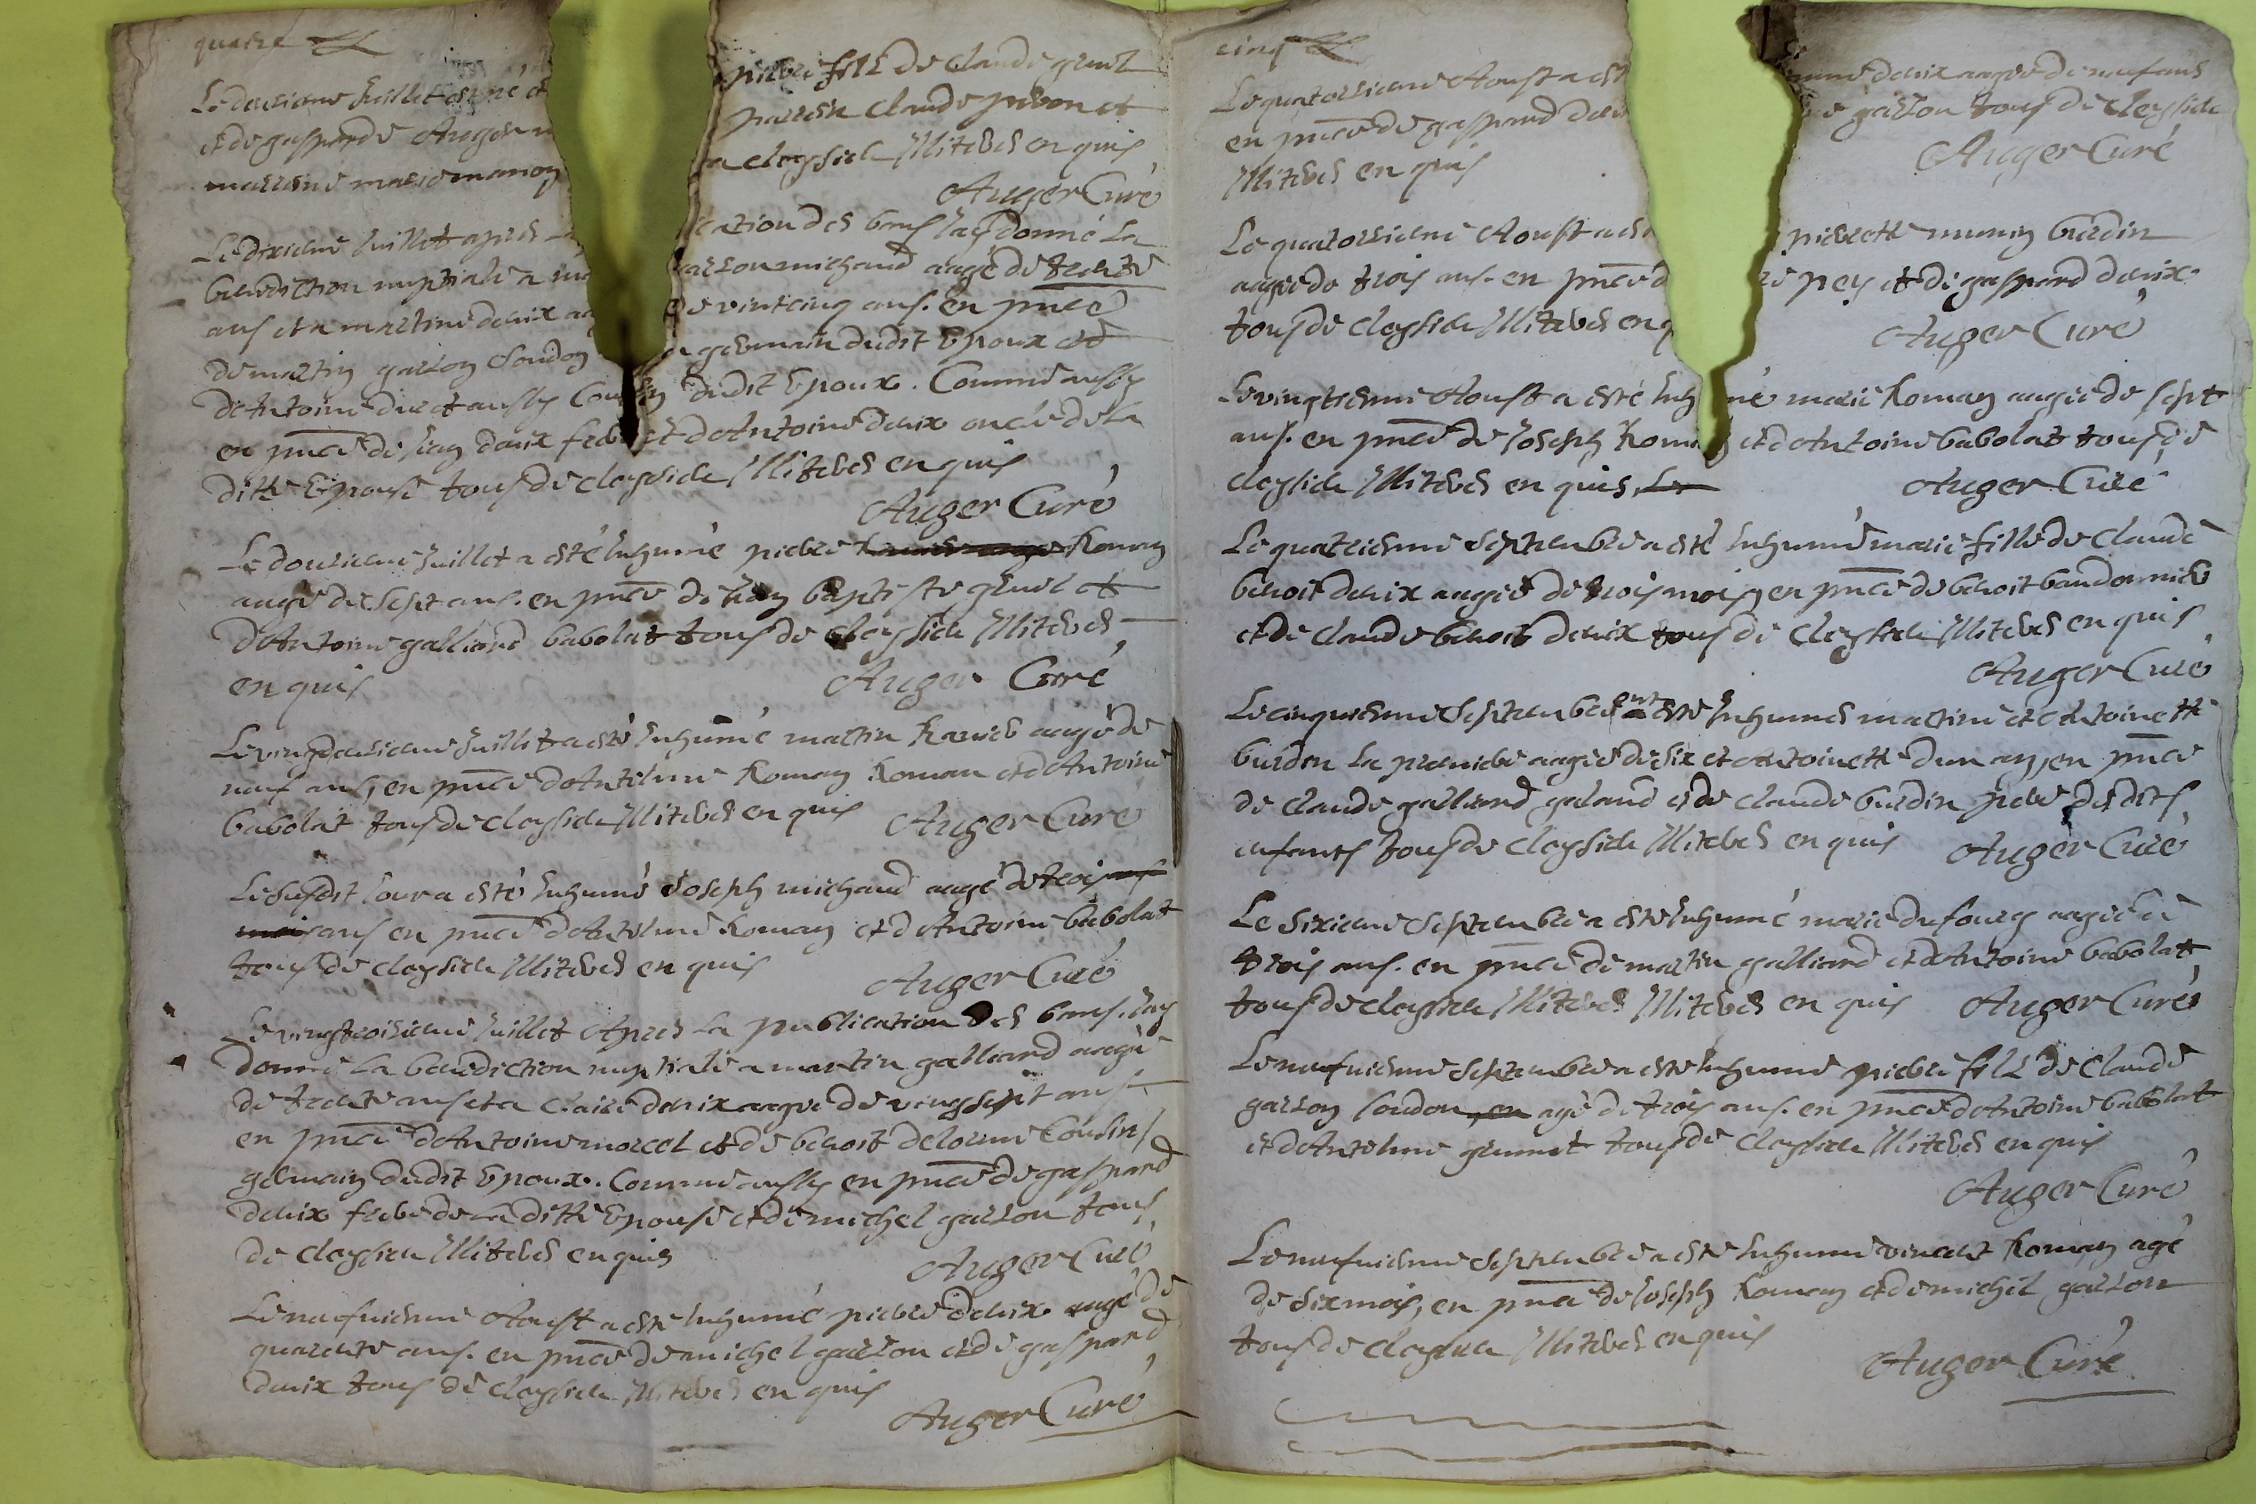 quatre
Le deusieme Juillet est né et
et de gasparde Auger
marrene marie manon
pierre fils de Claude gruel
parrein Claude piron et
a cleyssieu Illiteres en quis
Auger Curé
Le dixieme Juillet apres la
cation des bans Jay donné la
benediction nuptiale a
garzon michaud aagé de trente
ans et a martine deuix
de vintcinq ans. en pnce
de martin garzon Condon
germain dudit Epoux et
dAntoine duret aussy Cousin dudit Epoux. Comme aussy
en pnce de Jean deuix frere et dAntoine deuix oncle de la
ditte Epouse tous de cleyssieu Illiteres en quis
Auger Curé
Le dousieme Juillet a esté Inhumé pierre Roman
aagé de sept ans. en pnce de Jean baptiste gruel et
dAntoine galliand babolat tous de Cleyssieu Illiteres
en quis
Auger Curé
Le vingdeusieme Juillet a esté Inhumé martin Ravier aagé de
neuf ans, en pnce dAntelme Roman Roman et dAntoine
babolat tous de Cleyssieu Illiteres en quis Auger Curé
Le susdit Jour a esté Inhumé Joseph michaud aagé de trois ans
mois ans en pnce dAntelme Roman et dAntoine babolat
tous de cleyssieu Illiteres en quis
Auger Curé
Le vingtroisieme Juillet Apres la publication des bans. Jay
donné la benediction nuptiale a martin galliand aagé
de trente ans et a Claire deuix aagée de vingsept ans
en pnce dAntoine morcel et de benoit delorme Cousins
germain dudit Epoux. Comme aussy en pnce de gaspard
deuix frere de la ditte Epouse et de michel garzon tous
de cleyssieu Illiteres en quis
Auger Curé
Le neufvieme Aoust a esté Inhumé pierre deuix aagé de
quarente ans. en pnce de michel garzon et de gaspard
deuix tous de cleyssieu Illiteres en quis
Auger Curé
cinq
Le quatorsieme Aoust a esté
deuix aagée de neuf ans
en pnce de gaspard deuix
garzon tous de Cleyssieu
Illiteres en quis
Auger Curé
Le quatorsieme Aoust a esté
pierrette burdin
aagée de trois ans. en pnce d
pey et de gaspard deuix
tous de cleyssieu Illiteres en q
Auger Curé
Le vingtieme Aoust a esté Inhumé marie Roman aagée de sept
ans. en pnce de Joseph Roman et dAntoine babolat tous de
cleyssieu Illiteres en quis Le
Auger Curé
Le quatrieme Septembre a esté Inhumé marie fille de Claude
benoit deuix aagée de trois mois, en pnce de benoit baudornier
et de Claude benoit deuix tous de Cleyssieu Illiteres en quis
Auger Curé
Le cinquieme Septembre ont esté Inhumes martine et Antoinette
burdin la premiere aagée de six et Antoinette dun an, en pnce
de Claude galliand galand et de Claude burdin pere desdits
enfants tous de Cleyssieu Illiteres en quis Auger Curé
Le sixieme Septembre a esté Inhumé marie dufourg aagée de
trois ans. en pnce de martin galliand et dAntoine babolat
tous de cleyssieu Illiteres Illiteres en quis Auger Curé
Le neufvieme Septembre a esté Inhumé pierre fils de Claude
garzon Condon, en agé de trois ans. en pnce dAntoine babolat
et dAntelme grumet tous de Cleyssieu Illiteres en quis
Auger Curé
Le neufvieme Septembre a esté Inhumé vincent Roman agé
de six mois, en pnce de Joseph Roman et de michel garzon
tous de Cleyssieu Illiteres en quis
Auger Curé